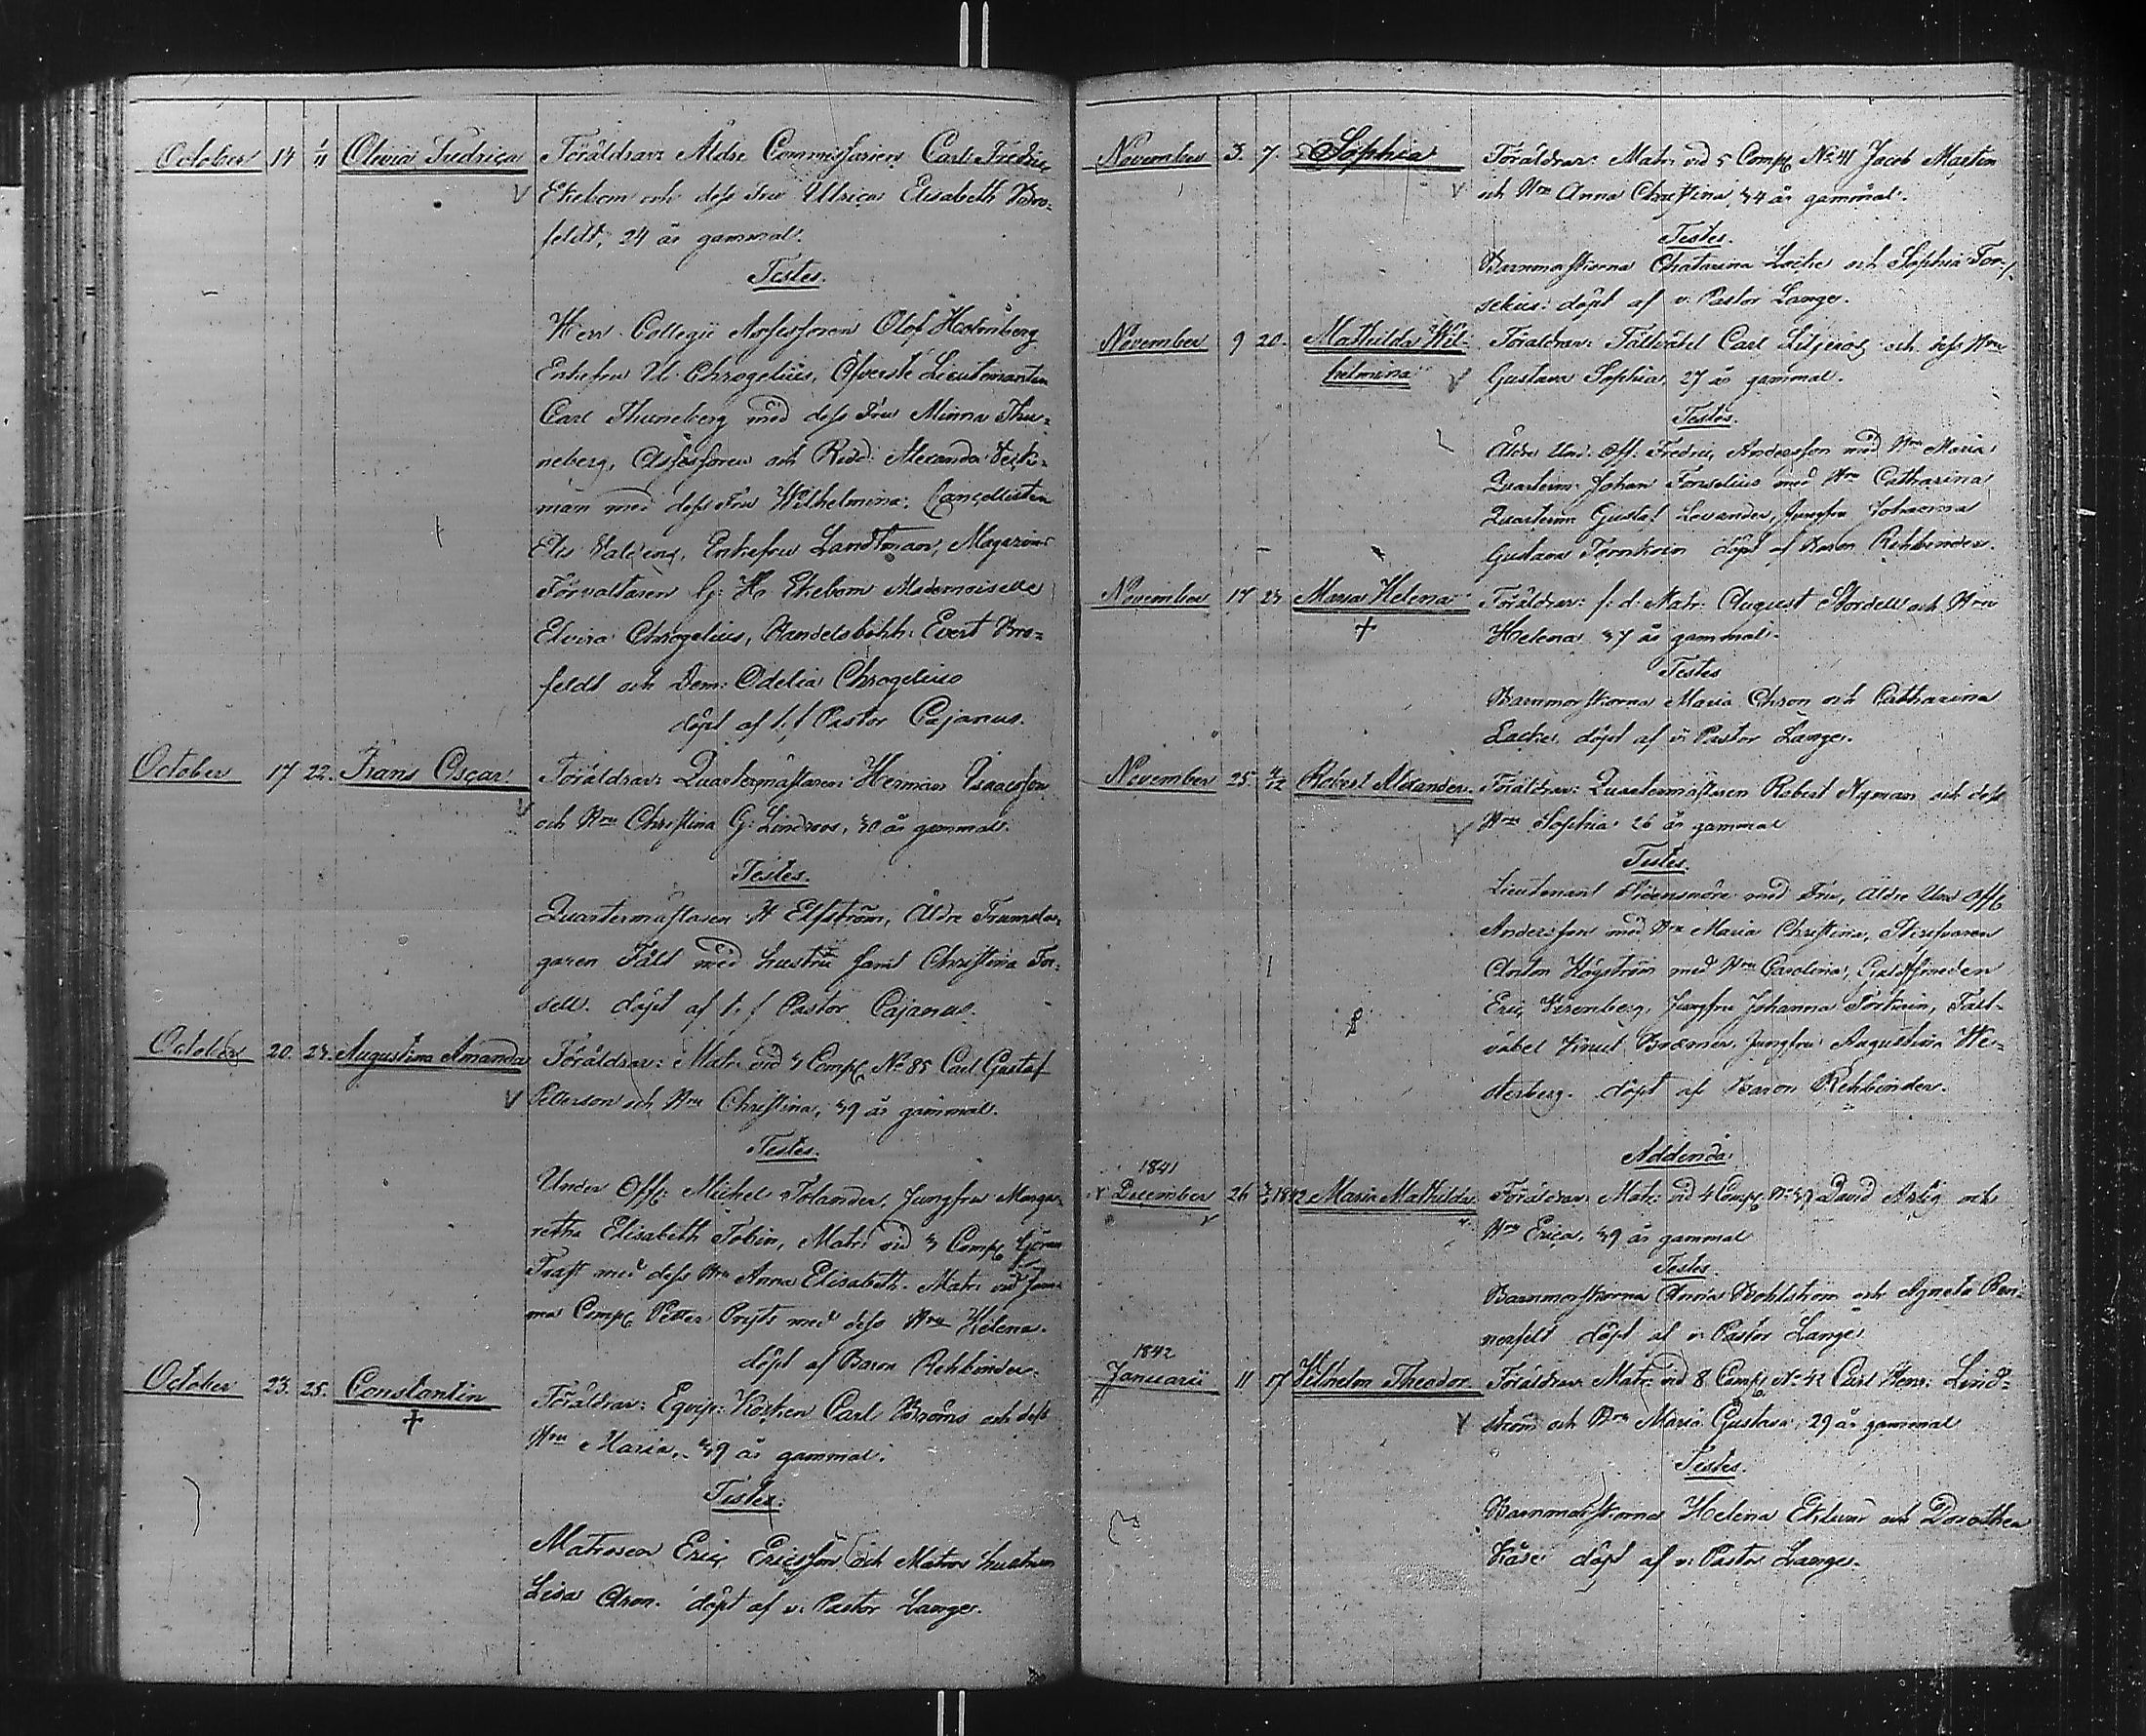 October 14 1/11 Olivia Fredrica Föräldrar: Äldre Commissarien Carl Fredric
Ekebom och dess Fru Ulrica Elisabeth Bro-
feldt, 24 år gammal.
Testes.
Herr Collegii Assessoren Olof Holmberg
Enkefru U. Chrogelius, Öfverste Lieutenanten
Carl Thuneberg med dess Fru Minna Thu-
neberg, Assessoren och Ridd: Alexander
man med dess Fru Wilhelmina, Cancellisten
Enkefru Landtman, Magazins
Förvaltaren Ekebom Mademoiselle
Elvira Chrogelius, Handelsbokh: Evert Bro-
feldt och Dem: Odelia Chrogelius
döpt af t. f. Pastor Cajanus.
October 17 22. Frans Oscar. Föräldrar: Quartermästaren Herman Isaacsson
och Hru Christina G: Lindroos, 30 år gammal.
Testes.
Quartermästaren A Elfström, Äldre Trumsla-
garen Fält med hustru samt Christina For-
sell. döpt af t. f. Pastor Cajanus.
October 20. 24. Augustina Amanda Föräldrar: Matr. vid 3 Comp. No 85 Carl Gustaf
Petterson och Hru Christina, 39 år gammal.
Testes.
Under Off: Michel Tolander, Jungfru Marga-
retha Elisabeth Tobin, Matr: vid 3 Comp.
med dess Hru Anna Elisabeth. Matr. vid sam-
ma Comp. Petter med dess Hru Helena.
döpt af Baron Rehbinder.
October 23. 25. Constantin Föräldrar: Equip: Karlen Carl Broms och dess
Hru Maria, 39 år gammal.
Testes.
Matrosen Eric Ericsson och Matros hustrun
Lisa Aron. döpt af v. Pastor Lange.
November 3. 7. Sophia Föräldrar: Matr. vid 5 Comp. No 41 Jacob Martin
och Hru Anna Christina, 34 år gammal.
Testes.
Barnmorskorna Chatarina Locke och Sophia For-
selius. döpt af v. Pastor Lange.
November 9 20. Mathilda Wil- Föräldrar: Fältväbel Carl Liljeros och dess Hru
helmina Gustava Sophia, 27 år gammal.
Testes.
Äldre Und. Off: Fredric Andersson med Hru Maria,
Quarterm: Johan Forselius med Hru Catharina
Quarterm Gustaf Levander, Jungfru Johanna
Gustava döpt af Baron Rehbinder.
November 17 24 Maria Helena Föräldrar: f: d: Matr: August Stordell och Hru
Helena 37 år gammal.
Testes
Barnmorskorna Maria Chron och Catharina
Lacke. döpt af v. Pastor Lange.
November 25. 4/12 Robert Alexander Föräldrar: Quartermästaren Robert Nyman och dess
Hru Sophia 26 år gammal
Testes.
Lieutenant Sidensnöre med Fru, Äldre Und Off:
Andersson med Hru Maria Christina, Skrifvaren
Anton Högström med Hru Carolina, Guldsmeden
Eric Jungfru Johanna Fält-
väbel Knut Jungfru Augustina We-
sterberg. döpt af Baron Rehbinder.
Addenda
1841
December 26 1842 Maria Mathilda Föräldrar Matr: vid 4 Comp. No 39 David Arlig och
Hru Erica, 39 år gammal
Testes.
Barnmorskorna Anna Bohlström och Agneta Ren-
nerfelt döpt af v: Pastor Lange
1842
Januarii 11 17 Wilhelm Theodor Föräldrar Matr: vid 8 Comp. No 42 Carl Henr: Lind-
ström och Hru Maria Gustava, 29 år gammal
Testes.
Barnmorskorna Helena Eklund och Dorothea
Kåse. döpt af v: Pastor Lange.